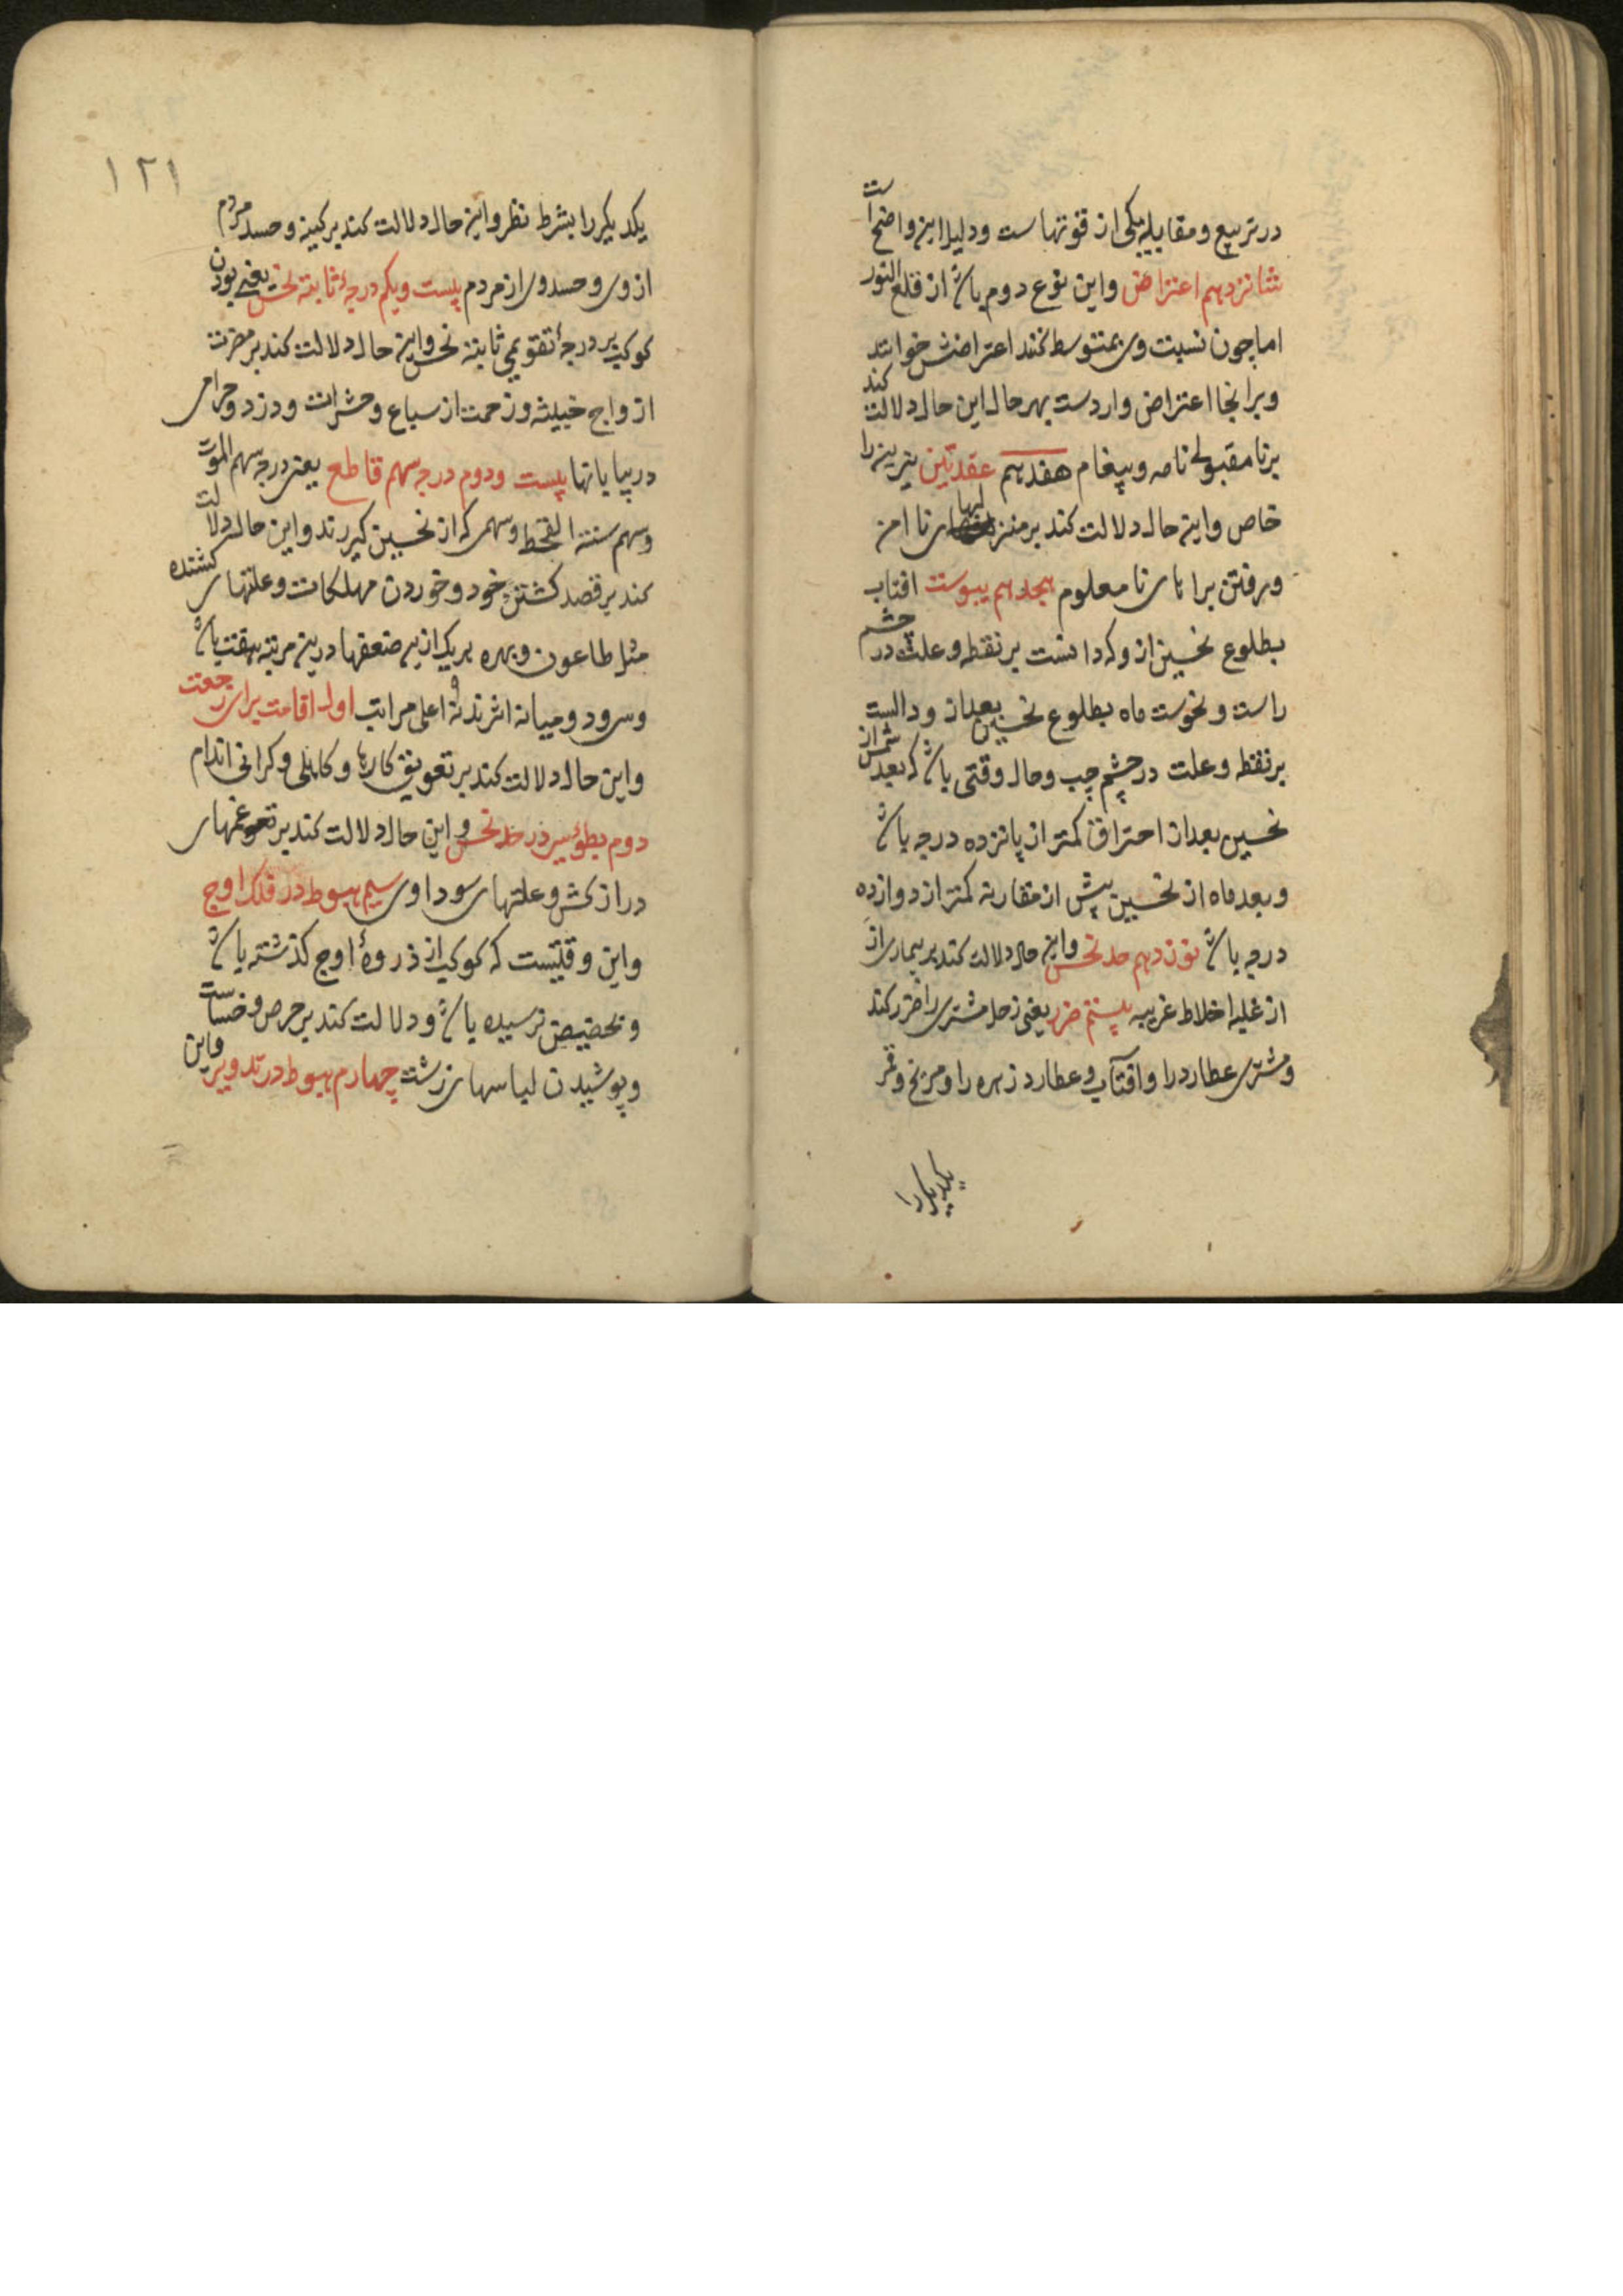 در تربیع و مقابله یکی از قوتهاست و دلیل این واضح است
شانزدهم اعتراض و این نوع دوم باشد از قلع النور
اما چون نسبت وی بمتوسط کنند اعتراضش خوانند
و برانجا اعتراض واردست بهر حال این حال دلالت کند
بر نامقبولی نامه و پیغام هفدهم عقدتین نیرین را
خاص و این حال دلالت کند بر منزلهای نا امن
و رفتن براهای نا معلوم هجدهم یبوست افتاب
بطلوع نحسین از و که دانست بر نقطه و علت در چشم
راست و نحوست ماه بطلوع نحسین بعد از و دالست
بر نقطه و علت در چشم چپ و حال وقتی باشد که بعد شمس از
نحسین بعد از احتراق کمتر از پانزده درجه باشد
و بعد ماه از نحسین پیش از مقارنه کمتر از دوازده
درجه باشد نوزدهم حد نحس و این حال دلالت کند بر بیماری از
از غلبه اخلاط غریبه بیستم ضرر یعنی زحل مشتری را ضرر کند
و مشتری عطارد را و افتاب و عطارد زهره را و مریخ و قمر
یکدیکر را
۱۲۱
یکدیکر را بشرط نظر و این حال دلالت کند بر کینه و حسد مردم
از وی و حسد وی از مردم بیست و یکم درجهٔ ثابته نحس یعنی بودن
کوکب بر درجهٔ تقویمی ثابته نحس و این حال دلالت کند بر مضرت
ازواج خبیثه و زحمت از سباع و حشرات و دزد و حرامی
در بیابانها بیست و دوم درجه سهم قاطع یعنی درجه سهم الموت
و سهم سنته القحط و سهمی که از نحسین کیرند و این حال دلالت
کند بر قصد کشتن خود و خوردن مهلکات و علتهای کشنده
مثل طاعون و بهره هر یک از این ضعفها درین مرتبه هفت باشد
و سرود و میانه اثرند نه اعلی مراتب اول اقامت برای رجعت
و این حال دلالت کند بر تعویق کارها و کاهلی و کرانی اندام
دوم بطوء سیر در حد نحس و این حال دلالت کند بر غمهای
دراز کش و علتهای سوداوی سیم هبوط در فلک اوج
و این وقتیست که کوکب از ذروهٔ اوج کذشته باشد
و بحضیض نرسیده باشد و دلالت کند بر حرص و خساست
و پوشیدن لباسهای زشت چهارم هبوط در تدویر و این